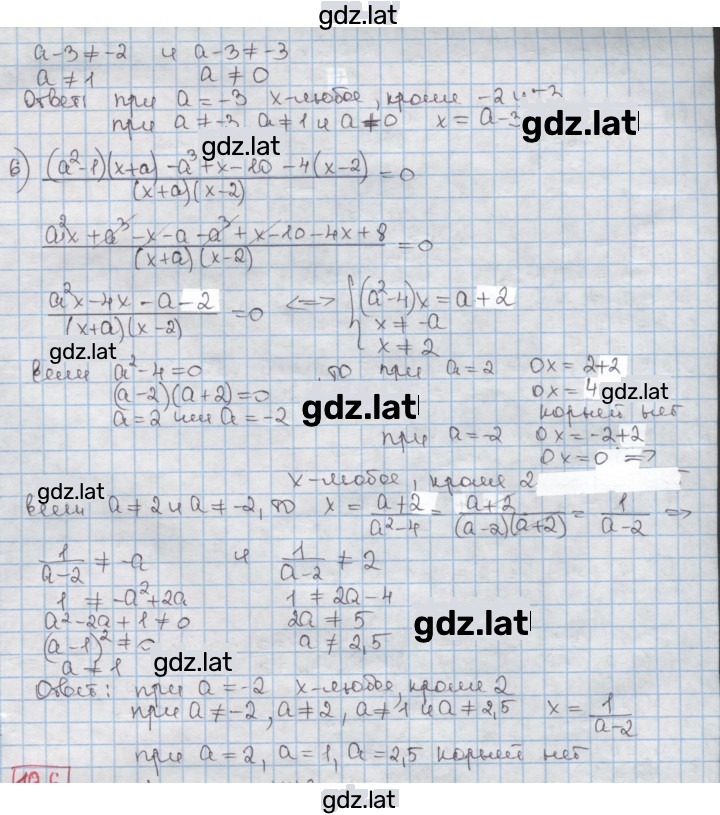 gdz.lat
a-3≠-2 и a-3≠-3
a≠1 a≠0
Ответ: при a=-3 x-любое, кроме -2 и -3
при a≠-3 a≠1 и a≠0 x=a-3
gdz.lat
gdz.lat
б) ((a²-1)(x+a)-a³+x-10-4(x-2))/((x+a)(x-2))=0
(a²x+a³-x-a-a³+x-10-4x+8)/((x+a)(x-2))=0
(a²x-4x-a-2)/((x+a)(x-2))=0 <=> { (a²-4)x=a+2
x≠-a
x≠2
gdz.lat
если a²-4=0 то при a=2 0x=2+2
(a-2)(a+2)=0 0x=4
gdz.lat
a=2 или a=-2 корней нет
gdz.lat
при a=-2 0x=-2+2
0x=0 =>
x-любое, кроме 2
gdz.lat
если a≠2 и a≠-2, то x=(a+2)/(a²-4)=(a+2)/((a-2)(a+2))=1/(a-2) =>
1/(a-2)≠-a и 1/(a-2)≠2
1≠-a²+2a 1≠2a-4
a²-2a+1≠0 2a≠5
gdz.lat
(a-1)²≠0 a≠2,5
a≠1
gdz.lat
Ответ: при a=-2 x-любое, кроме 2
при a≠-2, a≠2, a≠1 и a≠2,5 x=1/(a-2)
при a=2, a=1, a=2,5 корней нет
gdz.lat